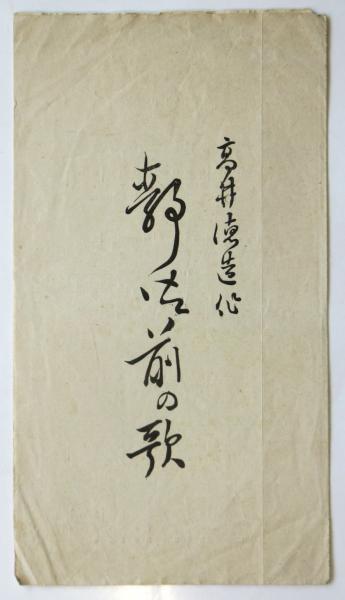 高井徳造作
静御前の歌